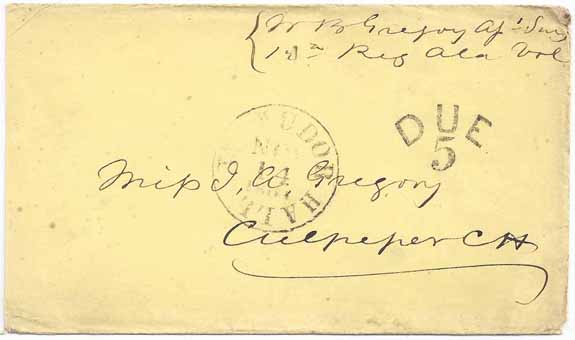 W B Gregory Aſt Surg
10th Reg Ala Vol
TUDOR HALL
NO
14
DUE
5
Miſs J. W. Gregory
Culpeper C H